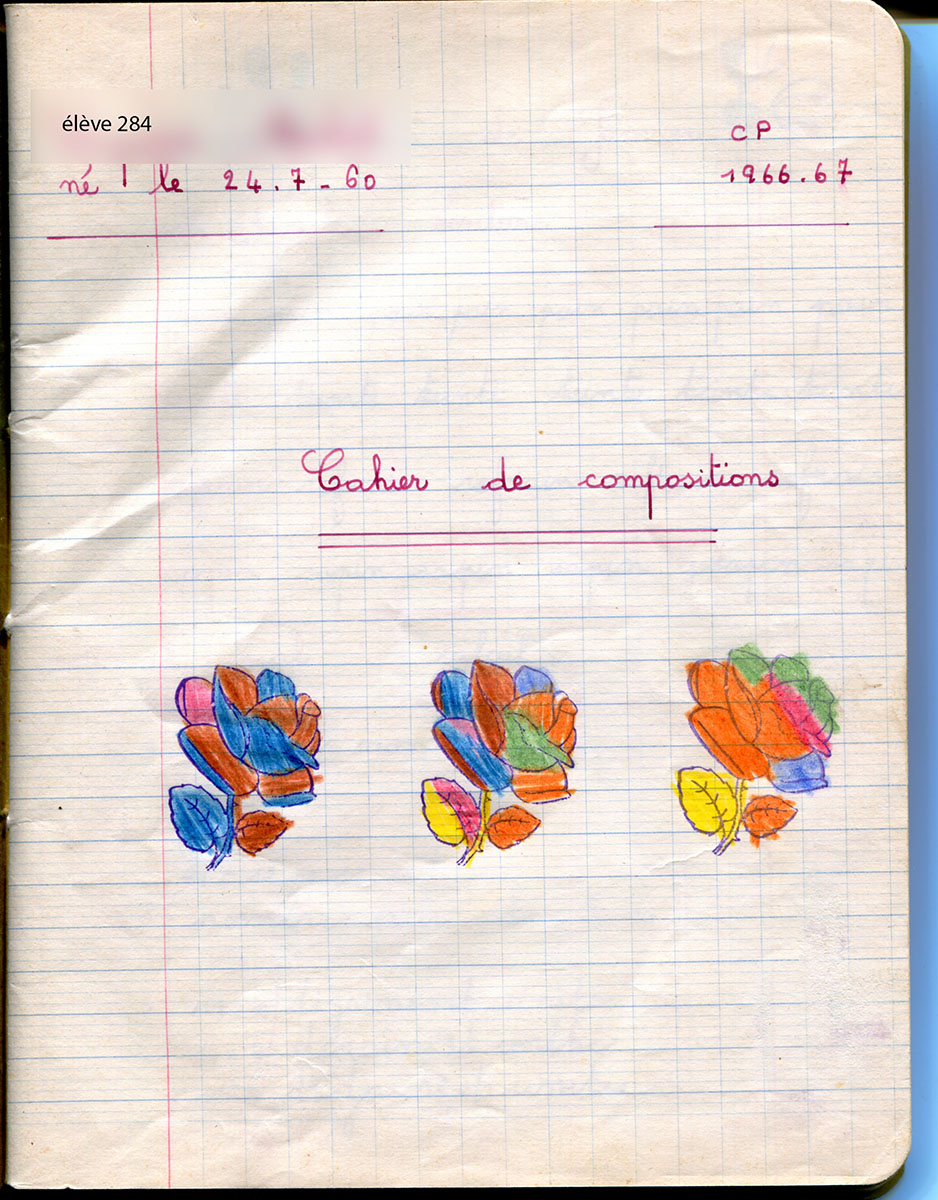 élève 284
CP
né le 24.7-60
1966.67
Cahier de compositions